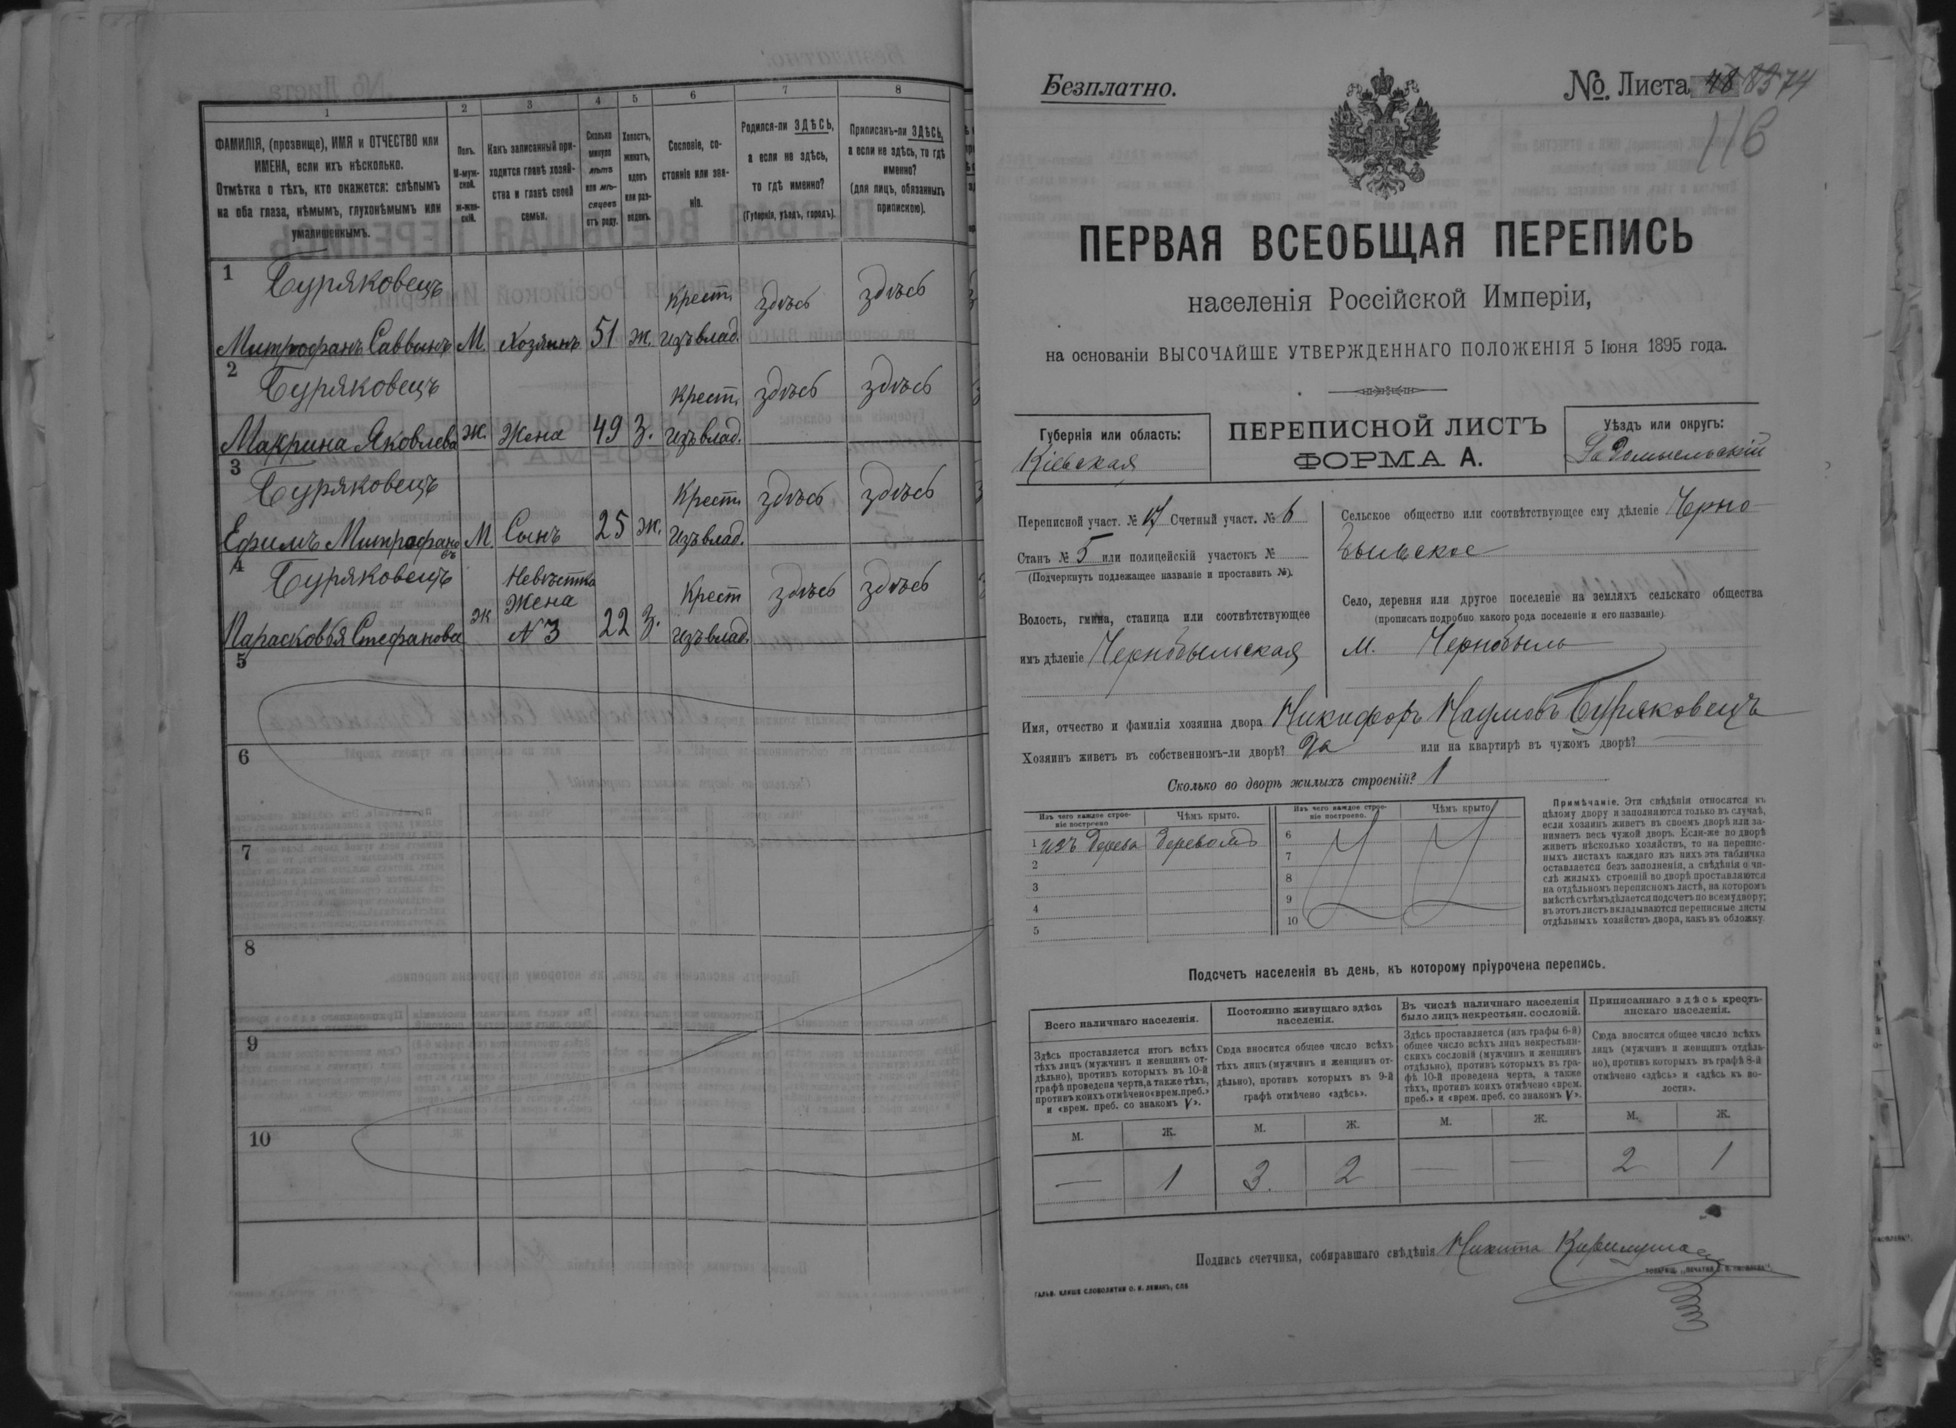 1
2
3
4
5
6
7
8
ФАМИЛІЯ, (прозвище), ИМЯ и ОТЧЕСТВО или
ИМЕНА, если ихъ нѣсколько.
Отмѣтка о тѣхъ, кто окажется: слѣпымъ
на оба глаза, нѣмымъ, глухонѣмымъ или
умалишеннымъ.
Полъ.
М-муж-
ской.
ж-жен-
скій.
Какъ записанный при-
ходится главѣ хозяй-
ства и главѣ своей
семьи.
Сколько
минуло
лѣтъ
или мѣ-
сяцевъ
отъ роду.
Холостъ,
женатъ,
вдовъ
или раз-
веденъ.
Сословіе, со-
стояніе или зва-
ніе.
Родился-ли ЗДѢСЬ,
а если не здѣсь,
то гдѣ именно?
(Губернія, уѣздъ, городъ).
Приписанъ-ли ЗДѢСЬ,
а если не здѣсь, то гдѣ
именно?
(для лицъ, обязанныхъ
припискою).
1 Буряковецъ Крест. здѣсь здѣсь
Митрофанъ Саввинъ М. Хозяинъ 51 ж. Изъ влад.
2 Буряковецъ Крест. здѣсь здѣсь
Макрина Яковлева Ж. Жена 49 З. Изъ влад.
3 Буряковецъ Крест. здѣсь здѣсь
Ефимъ Митрофано
въ М. Сынъ 25 ж. Изъ влад.
4 Буряковецъ Невѣстка Крест здѣсь здѣсь
Жена
Парасковья Стефанова ж N 3 22 З. Изъ влад.
5
6
7
8
9
10
Безплатно.
№. Листа 48
116
ПЕРВАЯ ВСЕОБЩАЯ ПЕРЕПИСЬ
населенія Россійской Имперіи,
на основаніи ВЫСОЧАЙШЕ УТВЕРЖДЕННАГО ПОЛОЖЕНІЯ 5 Іюня 1895 года.
Губернія или область:
Кіевская
ПЕРЕПИСНОЙ ЛИСТЪ
ФОРМА А.
Уѣздъ или округъ:
Радомысльскій
Переписной участ. № Счетный участ. № 6
Станъ № 5 или полицейскій участокъ №
(Подчеркнуть подлежащее названіе и проставить №).
Волость, гмина, станица или соотвѣтствующее
имъ дѣленіе Чернобыльская
Сельское общество или соотвѣтствующее ему дѣленіе Черно
быльское
Село, деревня или другое поселеніе на земляхъ сельскаго общества
(прописать подробно какого рода поселеніе и его названіе)
м. Чернобыль
Имя, отчество и фамилія хозяина двора Никифоръ Наумовъ Буряковецъ
Хозяинъ живетъ въ собственномъ-ли дворѣ? Да или на квартирѣ въ чужомъ дворѣ?
Сколько во дворѣ жилыхъ строеній? 1
Изъ чего каждое строе-
ніе построено
Чѣмъ крыто.
Изъ чего каждое строе-
ніе построено.
Чѣмъ крыто
1 изъ дерева деревомъ
2
3
4
5
6
7
8
9
10
Примѣчаніе. Эти свѣдѣнія относятся къ
цѣлому двору и заполняются только въ случаѣ,
если хозяинъ живетъ въ своемъ дворѣ или за-
нимаетъ весь чужой дворъ. Если-же во дворѣ
живетъ нѣсколько хозяйствъ, то на перепис-
ныхъ листахъ каждаго изъ нихъ эта табличка
оставляется безъ заполненія, а свѣдѣнія о чи-
слѣ жилыхъ строеній во дворѣ проставляются
на отдѣльномъ переписномъ листѣ, на которомъ
вмѣстѣ съ тѣмъ дѣлается подсчетъ по всему двору;
въ этотъ листъ вкладываются переписные листы
отдѣльныхъ хозяйствъ двора, какъ въ обложку.
Подсчетъ населенія въ день, къ которому пріурочена перепись.
Всего наличнаго населенія.
Здѣсь проставляется итогъ всѣхъ
тѣхъ лицъ (мужчинъ и женщинъ от-
дѣльно), противъ которыхъ въ 10-й
графѣ проведена черта, а также тѣхъ,
противъ коихъ отмѣчено «врем. преб.»
и «врем. преб. со знакомъ V».
Постоянно живущаго здѣсь
населенія.
Сюда вносится общее число всѣхъ
тѣхъ лицъ (мужчинъ и женщинъ от-
дѣльно), противъ которыхъ въ 9-й
графѣ отмѣчено «здѣсь».
Въ числѣ наличнаго населенія
было лицъ некрестьян. сословій.
Здѣсь проставляется (изъ графы 6-й)
общее число всѣхъ лицъ некрестьян-
скихъ сословій (мужчинъ и женщинъ
отдѣльно), противъ которыхъ въ гра-
фѣ 10-й проведена черта, а также
тѣхъ, противъ коихъ отмѣчено «врем.
преб.» и «врем. преб. со знакомъ V».
Приписаннаго здѣсь кресть-
янскаго населенія.
Сюда вносится общее число всѣхъ
лицъ (мужчинъ и женщинъ отдѣль-
но), противъ которыхъ въ графѣ 8-й
отмѣчено «здѣсь» и «здѣсь въ во-
лости».
М. Ж. М. Ж. М. Ж. М. Ж.
— 1 3. 2 — — 2 1
Подпись счетчика, собиравшаго свѣдѣнія Никита
ГАЛЬВ. КЛИШЕ СЛОВОЛИТНИ О. И. ЛЕМАНЪ, СПБ